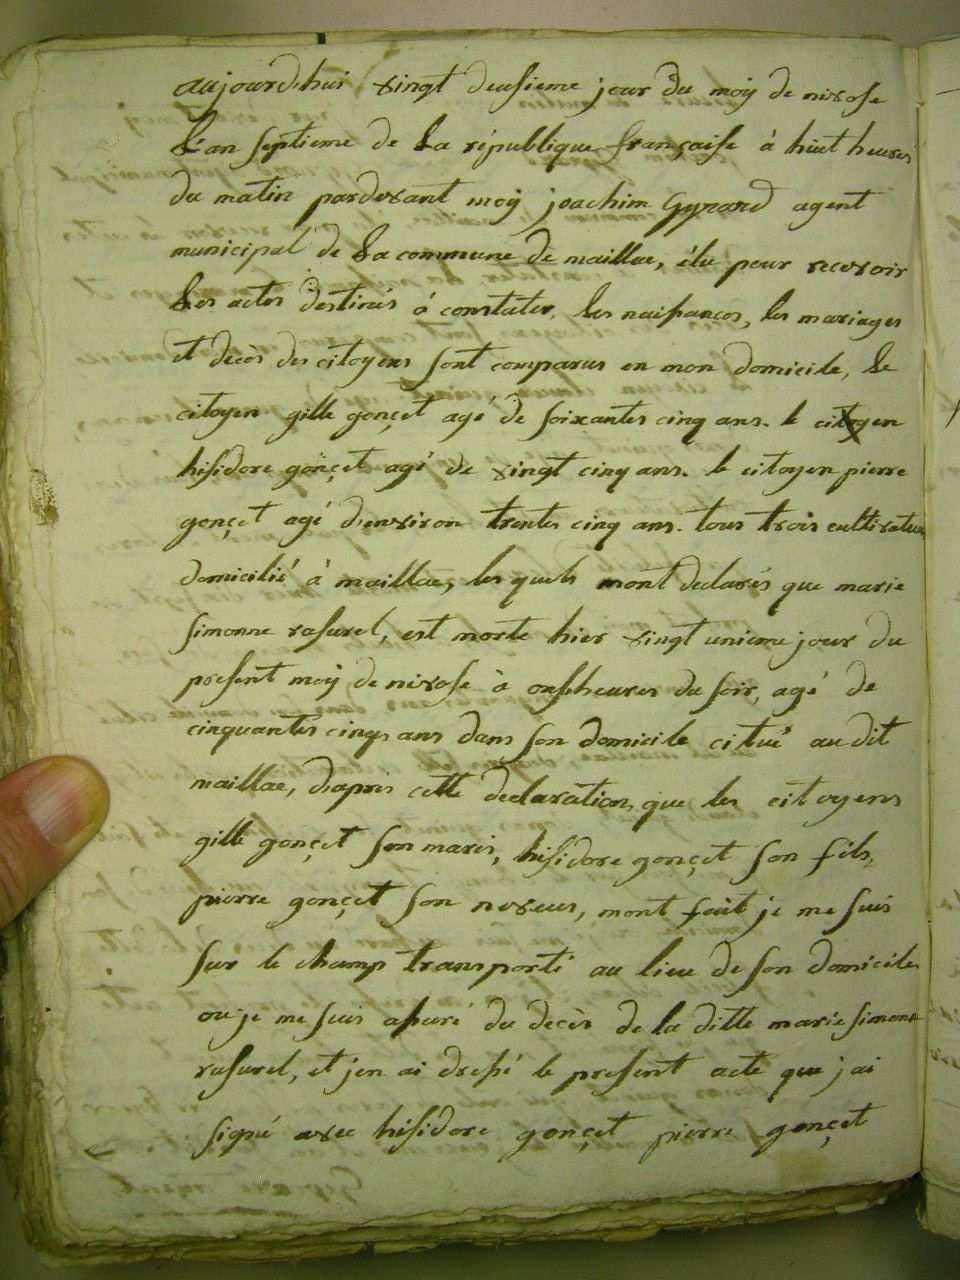 aujourdhui vingt deusieme jour du moÿ de nivose
L'an septieme de La république française à huit heures
du matin pardevant moÿ joachim Gynard agent
municipal de La commune de maillac, élu pour recevoir
Les actes destinés à constater, les naissances, les mariages
et decès des citoyens sont comparus en mon domicile, Le
citoyen gille gonçet agé de soixantes cinq ans. le citoyen
hisidore gonçet agé de vingt cinq ans. le citoyen pierre
gonçet agé d'environ trentes cinq ans. tous trois cultivateurs
domicilié à maillac, les quels mont declarés que marie
simonne rasurel, est morte hier vingt unieme jour du
present moÿ de nivose à onseheures du soir, agé de
cinquantes cinqs ans dans son domicile citué au dit
maillac, d'apris cette declaration, que les citoyens
gille gonçet son maris, hisidore gonçet son fils,
pierre gonçet son neveus, mont fait je me suis
sur le champ transporté au lieu de son domicile
ou je me suis assuré du decès de la ditte marie simonne
rasurel, et jen ai dressé le present acte que jai
signé avec hisidore gonçet pierre gonçet